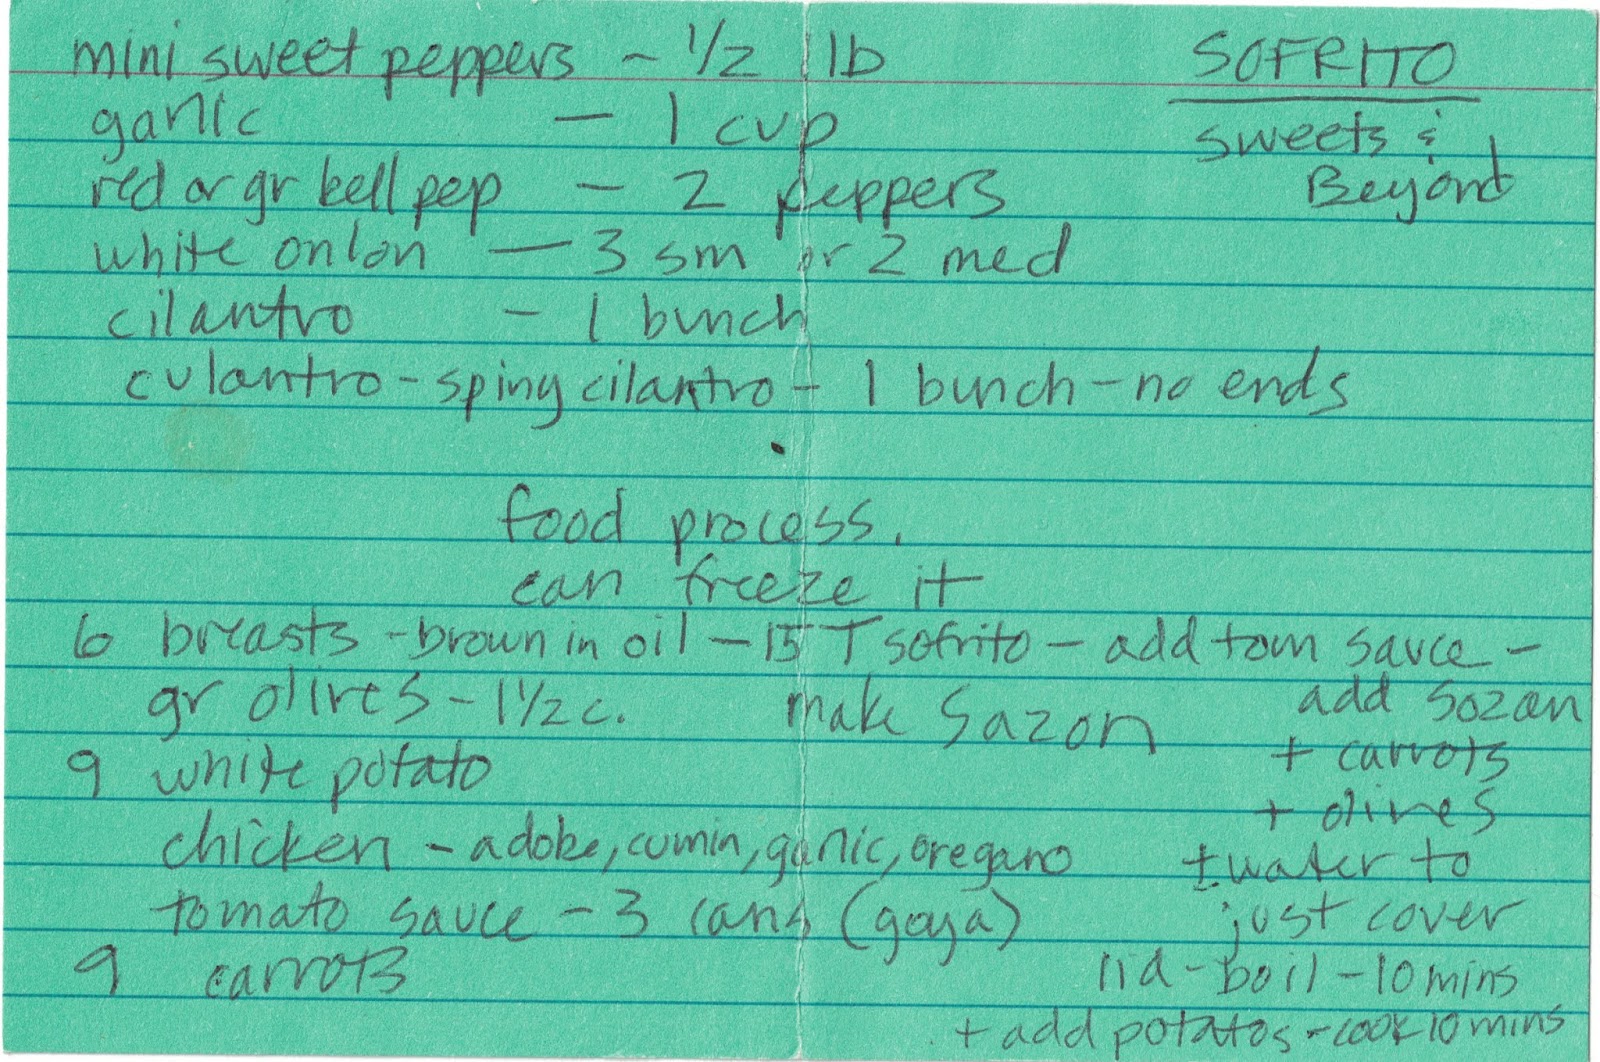 mini sweet peppers - 1/2 lb
SOFRITO
garlic - 1 cup
sweets &
Beyond
red or gr bell pep - 2 peppers
white onion - 3 sm or 2 med
cilantro - 1 bunch
culantro - spiny cilantro - 1 bunch - no ends
food process.
can freeze it
6 breasts - brown in oil - 15 T sofrito - add tom sauce -
gr olives - 1 1/2 c. make Sazon
9 white potato
chicken - adobe, cumin, garlic, oregano
tomato sauce - 3 cans (goya)
9 carrots
add sozan
+ carrots
+ olives
+ water to
just cover
lid - boil - 10 mins
+ add potatos - cook 10 mins